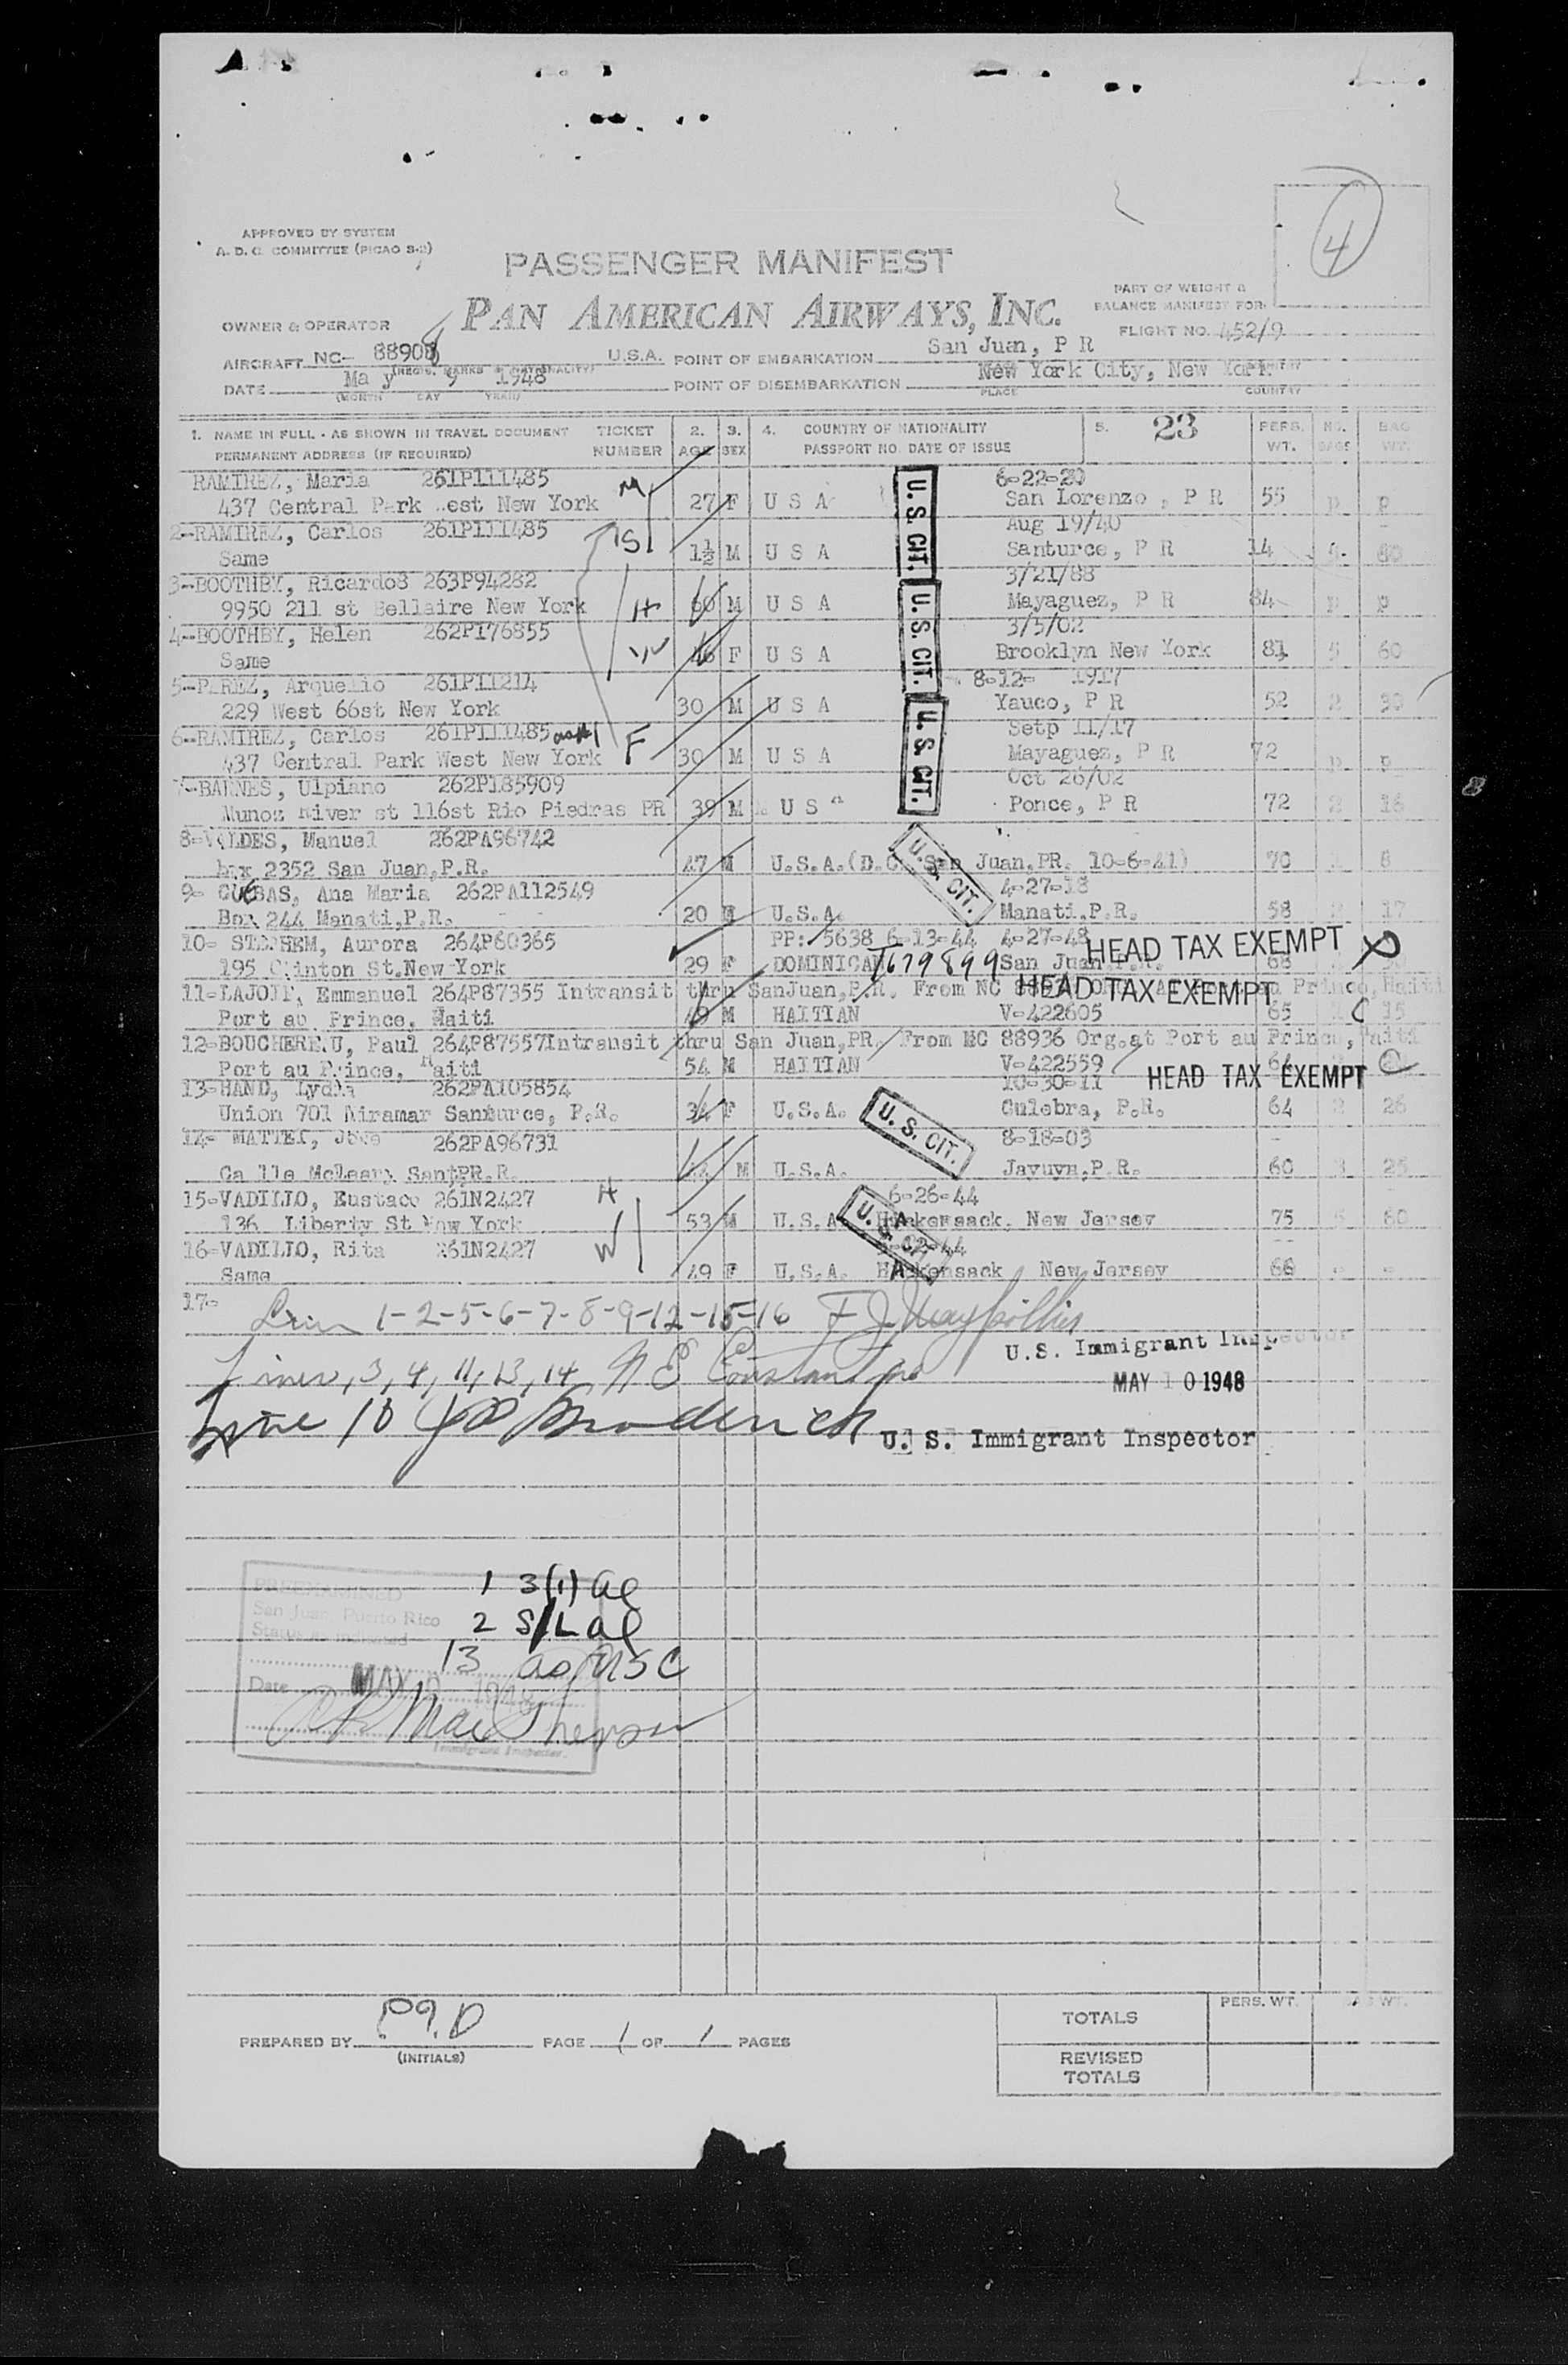 APPROVED BY SYSTEM
A. D. C. COMMITTEE (PICAO S-2)
4
PASSENGER MANIFEST
PART OF WEIGHT &
BALANCE MANIFEST FOR
OWNER & OPERATOR PAN AMERICAN AIRWAYS, INC.
FLIGHT NO. 452/9
AIRCRAFT NC- 88908 U.S.A. POINT OF EMBARKATION San Juan, P R
DATE Ma y 9 1948 POINT OF DISEMBARKATION New York City, New York
(MONTH DAY YEAR) PLACE COUNTRY
1. NAME IN FULL - AS SHOWN IN TRAVEL DOCUMENT TICKET 2. 3. 4. COUNTRY OF NATIONALITY 5. 23 PERS. NO. BAG
PERMANENT ADDRESS (IF REQUIRED) NUMBER AGE SEX PASSPORT NO. DATE OF ISSUE WT. BAGS WT.
RAMIREZ, Maria 261P111485 M 6-22-20
437 Central Park est New York 27 F U S A San Lorenzo , P R 55 p p
2-RAMIREZ, Carlos 261P111485 S Aug 19/40
Same 1½ M U S A Santurce, P R 14 4 60
3-BOOTHBY, Ricardo8 263P94282 3/21/88
9950 211 st Bellaire New York H 60 M U S A Mayaguez, P R 84 p p
4-BOOTHBY, Helen 262P176855 3/5/02
Same W 46 F U S A Brooklyn New York 81 5 60
5-PEREZ, Arquelio 261P11214 8-12- 1917
229 West 66st New York 30 M U S A Yauco, P R 52 2 30
6-RAMIREZ, Carlos 261P111485 Setp 11/17
437 Central Park West New York F 30 M U S A Mayaguez, P R 72 p p
7-BARNES, Ulpiano 262P185909 Oct 26/02
Munoz River st 116st Rio Piedras PR 39 M U S A Ponce, P R 72 2 16
8-VALDES, Manuel 262PA96742
box 2352 San Juan,P.R. 47 M U.S.A.(D.C. San Juan,PR. 10-6-41) 70 1 8
9- CUEBAS, Ana Maria 262PA112549 4-27-18
Box 244 Manati,P.R. 20 U.S.A. Manati.P.R. 58 17
10- Aurora 264P60365 PP: 5638 6-13-44 4-27-48 HEAD TAX EXEMPT
195 Clinton St.New York 29 F DOMINICAN I679899 San Juan,P.R. 68
11-LAJOIE, Emmanuel 264P87355 Intransit thru SanJuan,P.R. From NC HEAD TAX EXEMPT Prince,Haiti
Port au Prince, Haiti 49 M HAITIAN V-422605 65 15
12-BOUCHEREAU, Paul 264P87557Intransit thru San Juan,PR. From NC 88936 Org.at Port au Prince, Haiti
Port au Prince, Haiti 54 M HAITIAN V-422559 64
13-HAND, Lydia 262PA105854 10-30-11 HEAD TAX EXEMPT
Union 701 Miramar Santurce, P.R. 34 F U.S.A. Culebra, P.R. 64 2 26
14- MATTEI, Jose 262PA96731 8-18-03
Ca lle McLeary Sant,PR.R. 44 M U.S.A. Jayuya,P.R. 60 3 25
15-VADILLO, Eustace 261N2427 H 6-26-44
136 Liberty St New York 53 M U.S.A. Hackensack, New Jersey 75 5 80
16-VADILLO, Rita 261N2427 W -02-44
Same 49 F U.S.A. Hackensack New Jersey 66 - -
U. S. CIT.
U. S. CIT.
U. S. CIT.
U. S. CIT.
U. S. CIT.
U. S. CIT.
17-
1-2-5-6-7-8-9-12-15-16
U.S. Immigrant Inspector
Lines, 3, 4, 11, 13, 14, N E Constantine
MAY 10 1948
Line 10 Broderick U. S. Immigrant Inspector
PREEXAMINED 1 3(1) al
San Juan, Puerto Rico 2 S/L al
Status as indicated
13 as USC
Date MAY 9 1948
MacPherson
Immigrant Inspector.
PREPARED BY P.G.D PAGE 1 OF 1 PAGES
(INITIALS)
TOTALS PERS. WT. BAG WT.
REVISED
TOTALS